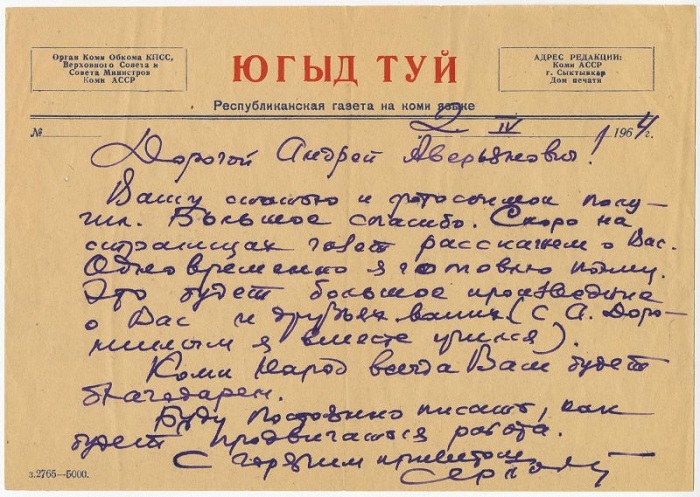 Орган Коми Обкома КПСС,
Верховного Совета и
Совета Министров
Коми АССР
ЮГЫД ТУЙ
АДРЕС РЕДАКЦИИ:
Коми АССР
г. Сыктывкар
Дом печати
Республиканская газета на коми языке
№ 2. IV 1964 г.
Дорогой Андрей Аверьянович!
Вашу статью и фотоснимок полу-
чил. Большое спасибо. Скоро на
страницах газет расскажем о Вас.
Одновременно я готовлю поэму.
Это будет большое произведение
о Вас и друзьях ваших (с А. Доро-
ниным я вместе учился).
Коми народ всегда Вам будет
благодарен.
Буду постоянно писать, как
будет продвигаться работа.
С горячим приветом
з.2765—5000.